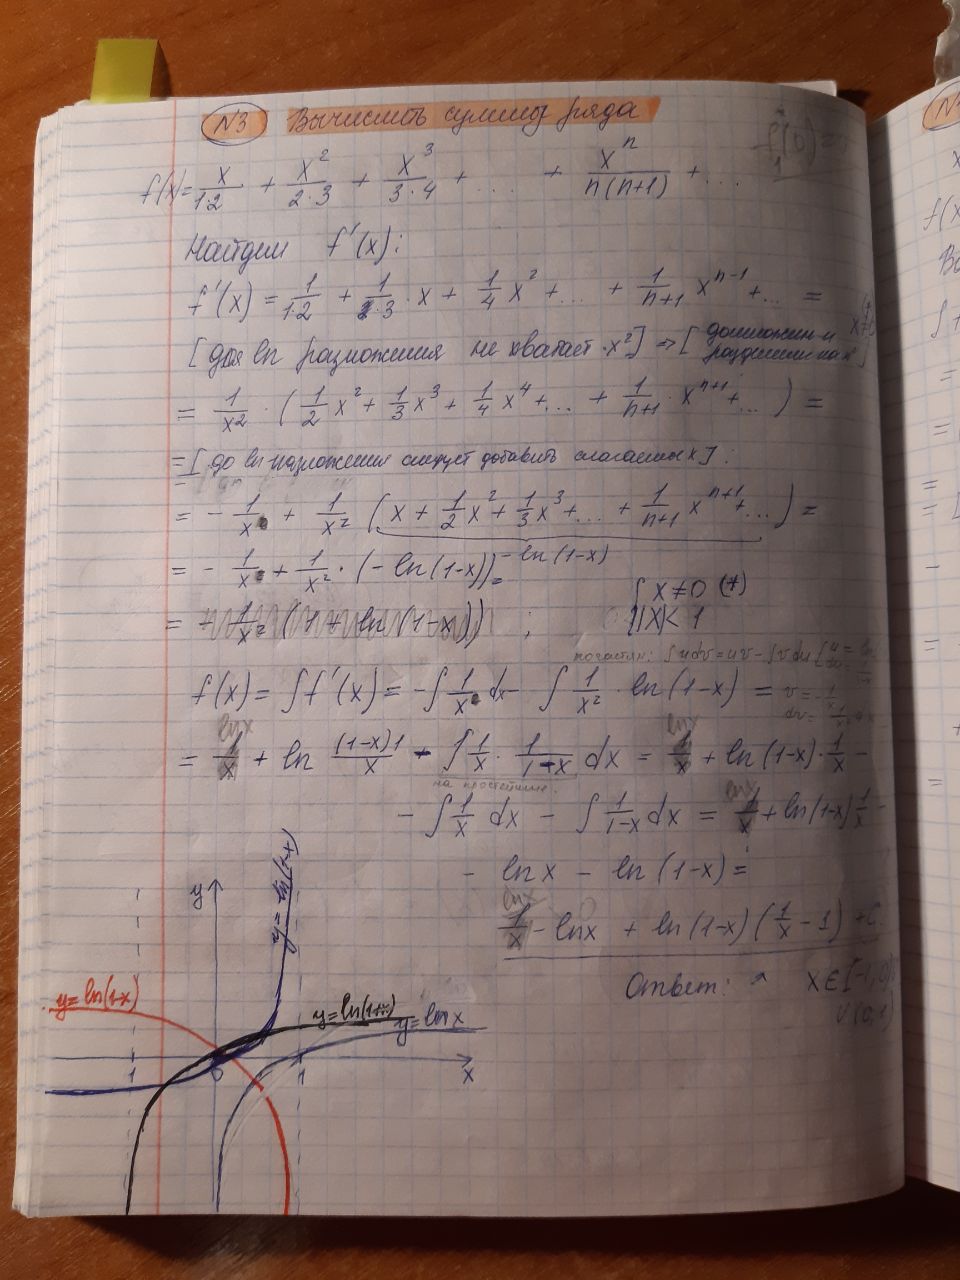 N3 Вычислить сумму ряда
f(x)= x/1·2 + x²/2·3 + x³/3·4 + .... + xⁿ/n(n+1) + ...
f(0)=
Найдем f'(x):
f'(x) = 1/1·2 + 1/2·3 · x + 1/4 x² + ... + 1/n+1 xⁿ⁻¹ + ... =
[для ln разложения не хватает x²] ⇒ [домножим и разделим на x²] x≠0 (*)
= 1/x² · (1/2 x² + 1/3 x³ + 1/4 x⁴ + ... + 1/n+1 · xⁿ⁺¹ + ...) =
= [до ln разложения следует добавить слагаемых x]:
= - 1/x + 1/x² (x + 1/2 x² + 1/3 x³ + ... + 1/n+1 xⁿ⁺¹ + ...) =
-ln(1-x)
= - 1/x + 1/x² · (-ln(1-x)) =
{ x≠0 (*)
|x|<1
= + 1/x² (1 + ln(1-x)) ;
по частям: ∫udv=uv-∫vdu
f(x) = ∫f'(x) = -∫ 1/x dx - ∫ 1/x² · ln(1-x) =
lnx lnx
= 1/x + ln (1-x)1/x - ∫ 1/x · 1/1-x dx = 1/x + ln(1-x)· 1/x -
на простейшие.
- ∫ 1/x dx - ∫ 1/1-x dx = 1/x + ln(1-x) 1/x -
lnx
- lnx - ln(1-x) =
lnx
1/x - lnx + ln(1-x)(1/x - 1) + C.
Ответ: ^ x∈[-1,0)
∪(0,1)
y
y=ln(1-x)
y=ln(1-x)
y=ln(1+x)
y=lnx
-1
0
1
x